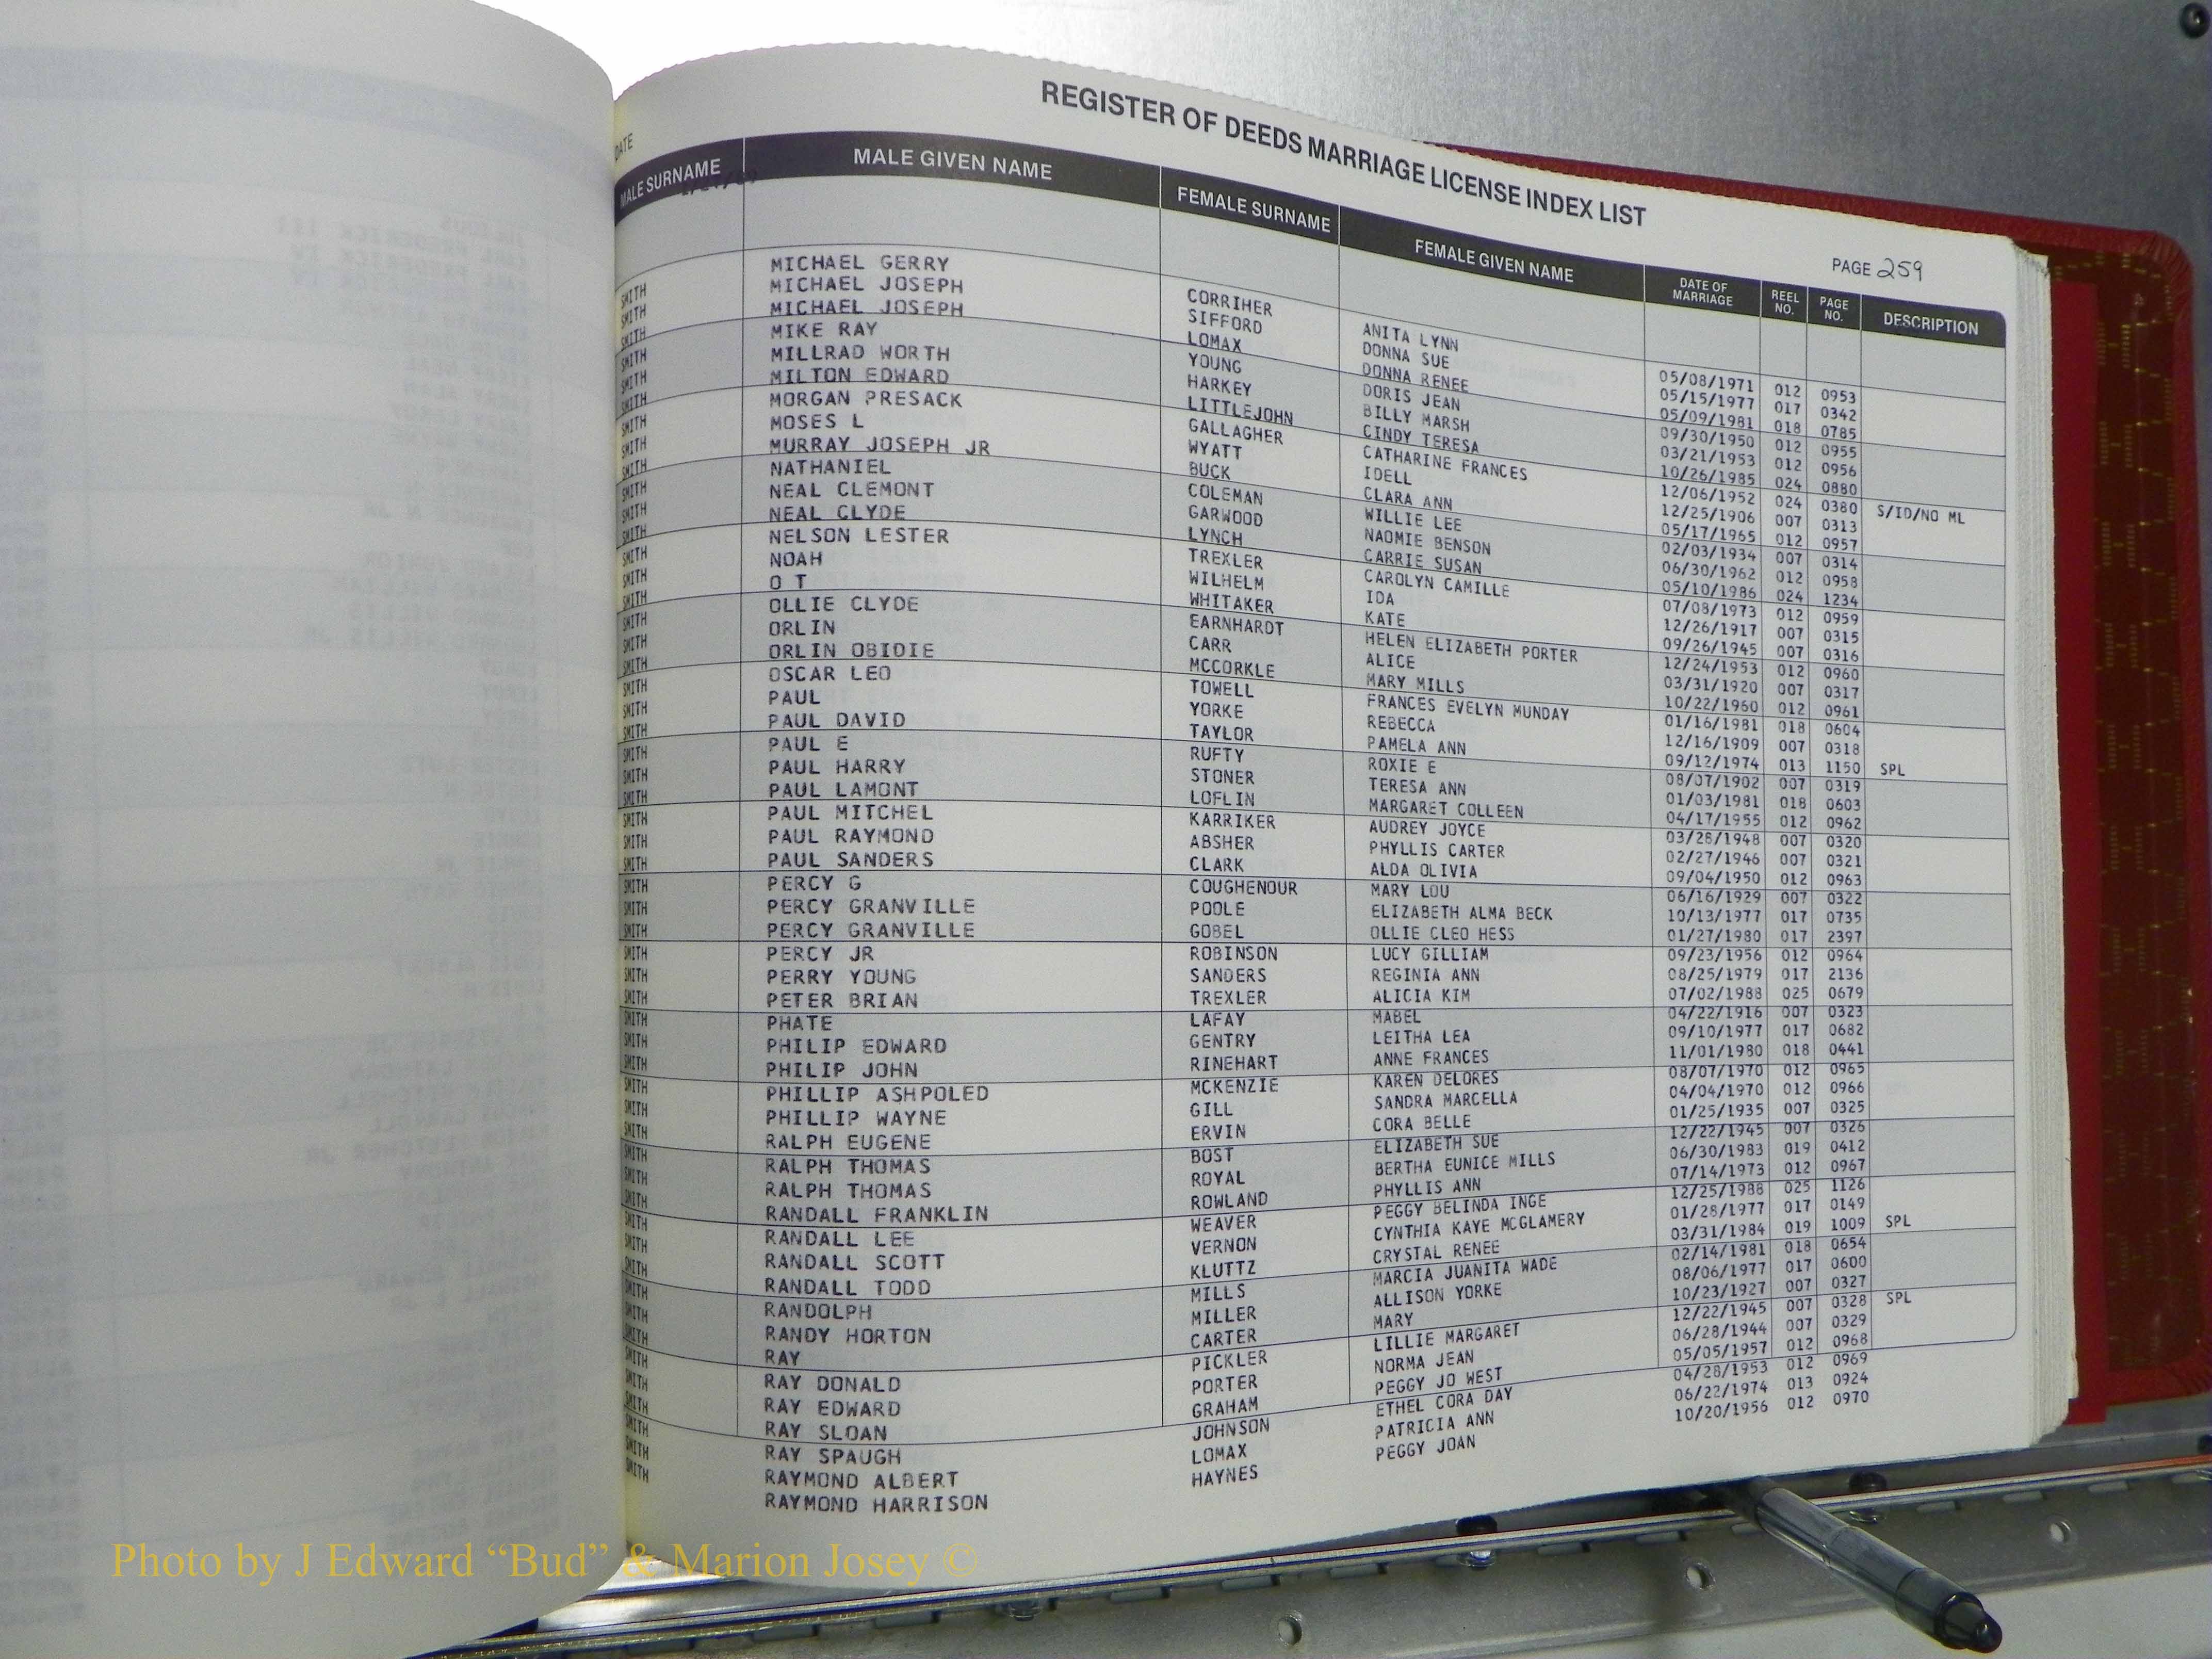 REGISTER OF DEEDS MARRIAGE LICENSE INDEX LIST
DATE
PAGE 259
MALE SURNAME MALE GIVEN NAME FEMALE SURNAME FEMALE GIVEN NAME DATE OF MARRIAGE REEL NO. PAGE NO. DESCRIPTION
SMITH MICHAEL GERRY CORRIHER ANITA LYNN 05/08/1971 012 0953
SMITH MICHAEL JOSEPH SIFFORD DONNA SUE 05/15/1977 017 0342
SMITH MICHAEL JOSEPH LOMAX DONNA RENEE 05/09/1981 018 0785
SMITH MIKE RAY YOUNG DORIS JEAN 09/30/1950 012 0955
SMITH MILLRAD WORTH HARKEY BILLY MARSH 03/21/1953 012 0956
SMITH MILTON EDWARD LITTLEJOHN CINDY TERESA 10/26/1985 024 0880
SMITH MORGAN PRESACK GALLAGHER CATHARINE FRANCES 12/06/1952 024 0380 S/ID/NO ML
SMITH MOSES L WYATT IDELL 12/25/1906 007 0313
SMITH MURRAY JOSEPH JR BUCK CLARA ANN 05/17/1965 012 0957
SMITH NATHANIEL COLEMAN WILLIE LEE 02/03/1934 007 0314
SMITH NEAL CLEMONT GARWOOD NAOMIE BENSON 06/30/1962 012 0958
SMITH NEAL CLYDE LYNCH CARRIE SUSAN 05/10/1986 024 1234
SMITH NELSON LESTER TREXLER CAROLYN CAMILLE 07/08/1973 012 0959
SMITH NOAH WILHELM IDA 12/26/1917 007 0315
SMITH O T WHITAKER KATE 09/26/1945 007 0316
SMITH OLLIE CLYDE EARNHARDT HELEN ELIZABETH PORTER 12/24/1953 012 0960
SMITH ORLIN CARR ALICE 03/31/1920 007 0317
SMITH ORLIN OBIDIE MCCORKLE MARY MILLS 10/22/1960 012 0961
SMITH OSCAR LEO TOWELL FRANCES EVELYN MUNDAY 01/16/1981 018 0604
SMITH PAUL YORKE REBECCA 12/16/1909 007 0318
SMITH PAUL DAVID TAYLOR PAMELA ANN 09/12/1974 013 1150 SPL
SMITH PAUL E RUFTY ROXIE E 08/07/1902 007 0319
SMITH PAUL HARRY STONER TERESA ANN 01/03/1981 018 0603
SMITH PAUL LAMONT LOFLIN MARGARET COLLEEN 04/17/1955 012 0962
SMITH PAUL MITCHEL KARRIKER AUDREY JOYCE 03/28/1948 007 0320
SMITH PAUL RAYMOND ABSHER PHYLLIS CARTER 02/27/1946 007 0321
SMITH PAUL SANDERS CLARK ALDA OLIVIA 09/04/1950 012 0963
SMITH PERCY G COUGHENOUR MARY LOU 06/16/1929 007 0322
SMITH PERCY GRANVILLE POOLE ELIZABETH ALMA BECK 10/13/1977 017 0735
SMITH PERCY GRANVILLE GOBEL OLLIE CLEO HESS 01/27/1980 017 2397
SMITH PERCY JR ROBINSON LUCY GILLIAM 09/23/1956 012 0964
SMITH PERRY YOUNG SANDERS REGINIA ANN 08/25/1979 017 2136
SMITH PETER BRIAN TREXLER ALICIA KIM 07/02/1988 025 0679
SMITH PHATE LAFAY MABEL 04/22/1916 007 0323
SMITH PHILIP EDWARD GENTRY LEITHA LEA 09/10/1977 017 0682
SMITH PHILIP JOHN RINEHART ANNE FRANCES 11/01/1980 018 0441
SMITH PHILLIP ASHPOLED MCKENZIE KAREN DELORES 08/07/1970 012 0965
SMITH PHILLIP WAYNE GILL SANDRA MARCELLA 04/04/1970 012 0966
SMITH RALPH EUGENE ERVIN CORA BELLE 01/25/1935 007 0325
SMITH RALPH THOMAS BOST ELIZABETH SUE 12/22/1945 007 0326
SMITH RALPH THOMAS ROYAL BERTHA EUNICE MILLS 06/30/1983 019 0412
SMITH RANDALL FRANKLIN ROWLAND PHYLLIS ANN 07/14/1973 012 0967
SMITH RANDALL LEE WEAVER PEGGY BELINDA INGE 12/25/1988 025 1126
SMITH RANDALL SCOTT VERNON CYNTHIA KAYE MCGLAMERY 01/28/1977 017 0149
SMITH RANDALL TODD KLUTTZ CRYSTAL RENEE 03/31/1984 019 1009 SPL
SMITH RANDOLPH MILLS MARCIA JUANITA WADE 02/14/1981 018 0654
SMITH RANDY HORTON MILLER ALLISON YORKE 08/06/1977 017 0600
SMITH RAY CARTER MARY 10/23/1927 007 0327
SMITH RAY DONALD PICKLER LILLIE MARGARET 12/22/1945 007 0328 SPL
SMITH RAY EDWARD PORTER NORMA JEAN 06/28/1944 007 0329
SMITH RAY SLOAN GRAHAM PEGGY JO WEST 05/05/1957 012 0968
SMITH RAY SPAUGH JOHNSON ETHEL CORA DAY 04/28/1953 012 0969
SMITH RAYMOND ALBERT LOMAX PATRICIA ANN 06/22/1974 013 0924
SMITH RAYMOND HARRISON HAYNES PEGGY JOAN 10/20/1956 012 0970
Photo by J Edward “Bud” & Marion Josey ©